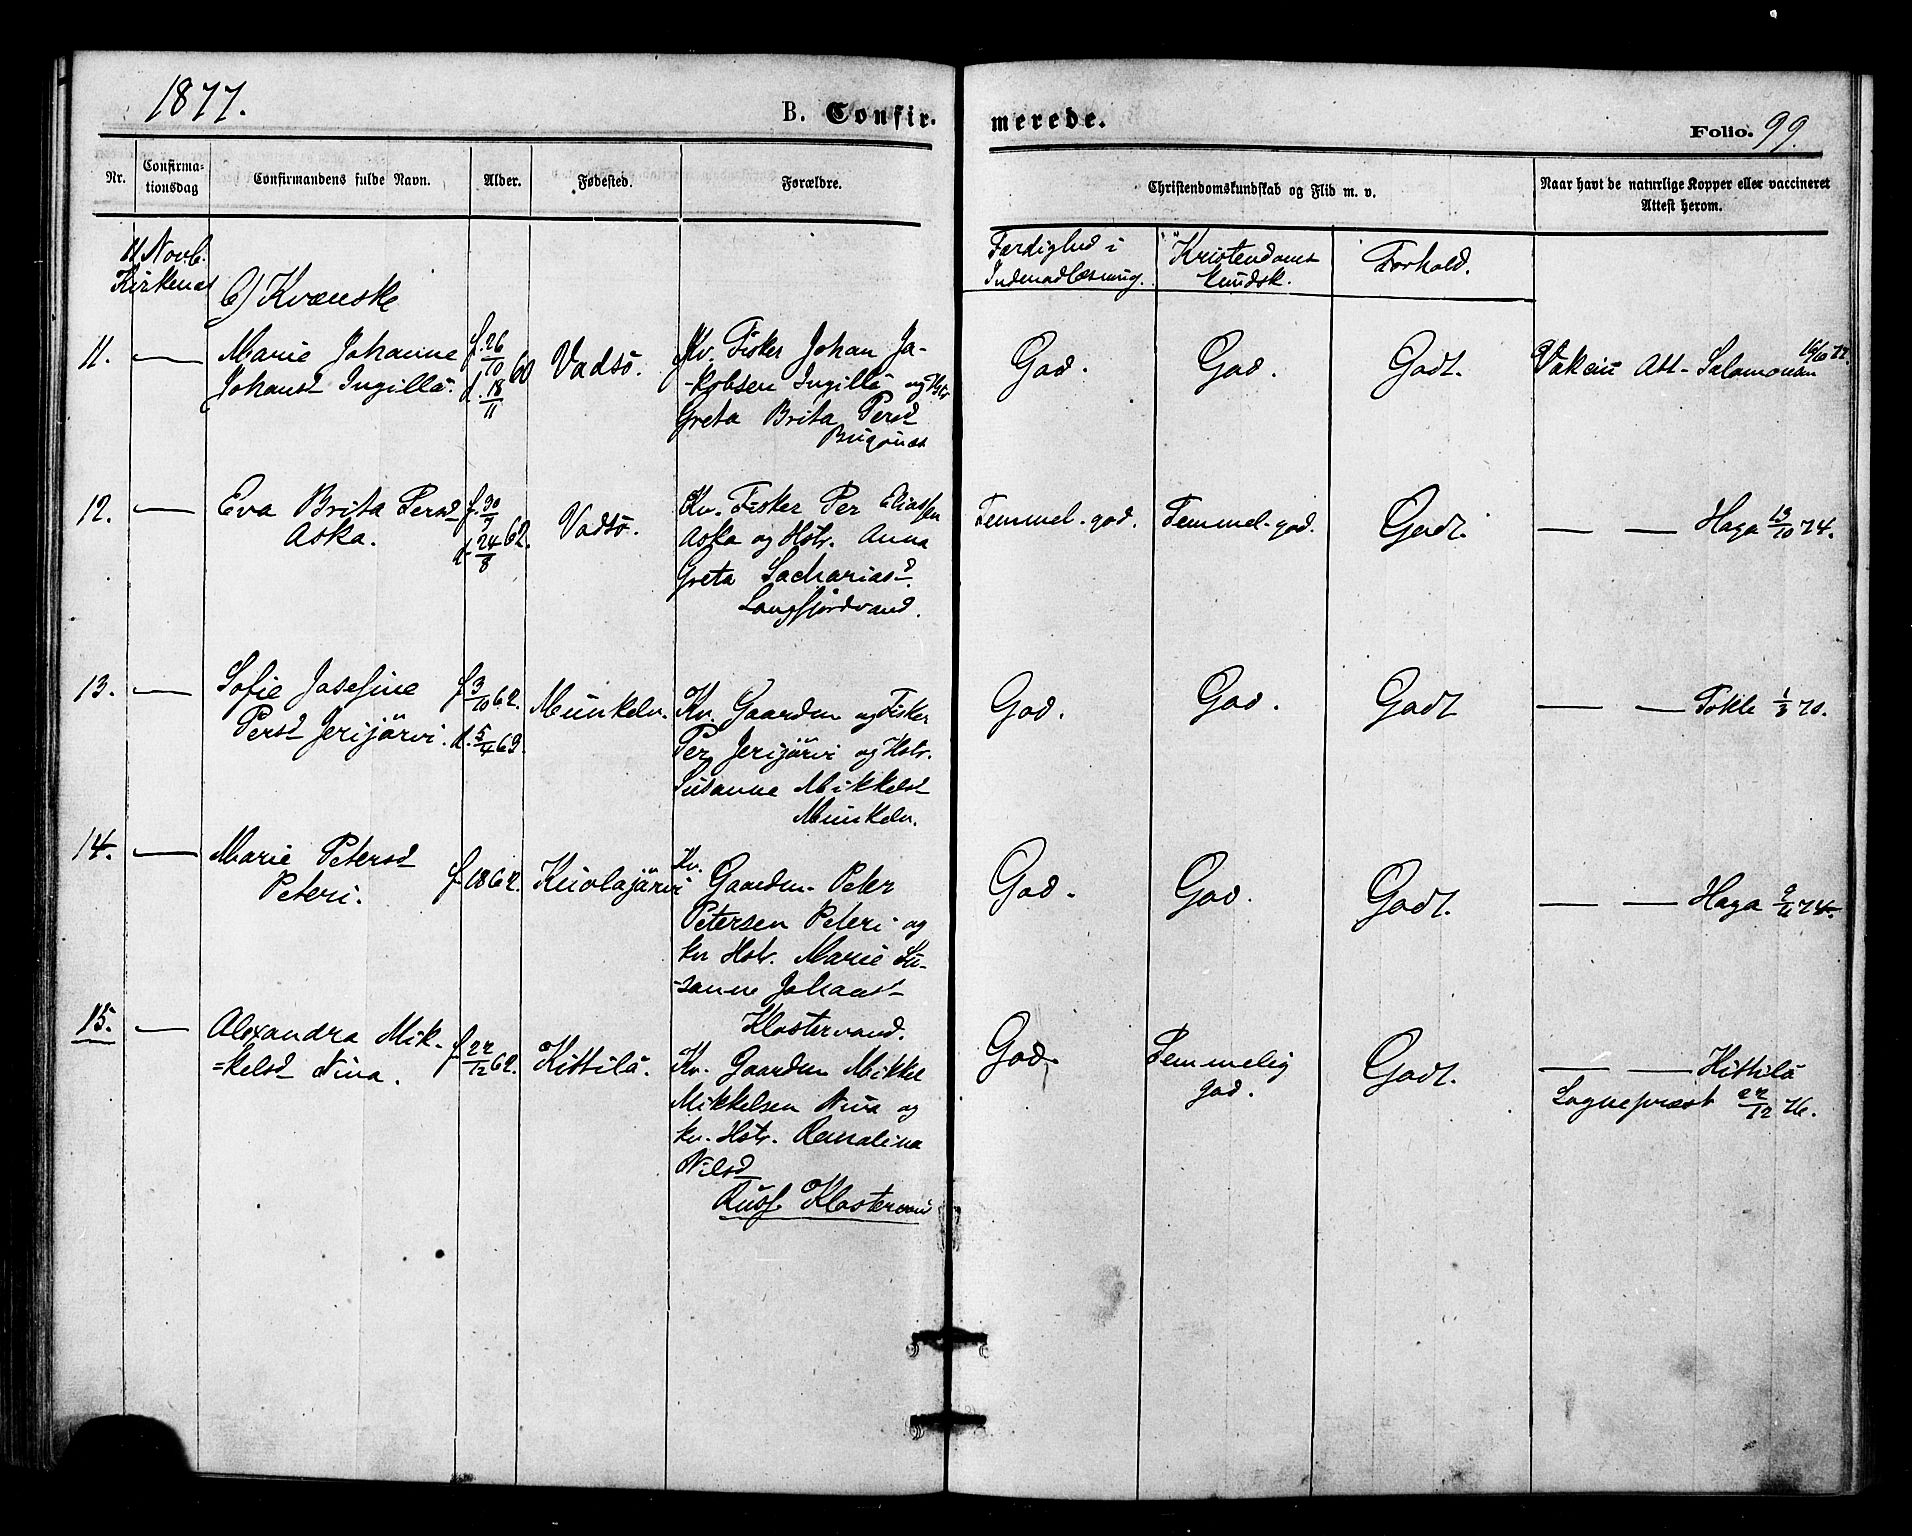 1877.
B. Confir-
merede.
Folio. 99.
Nr.
Confirma-
tionsdag
Confirmandens fulde Navn.
Alder.
Fødested.
Forældre.
Christendomskundskab og Flid m. v.
Naar havt de naturlige Kopper eller vaccineret
Attest herom.
11 Novb.
Kirkenæs
Færdighed i
Indenadlæsning.
Kristendoms
kundsk.
Forhold.
b) Kvænske
11. — Marie Johanne
Johansd Ingillä.
f. 26/10 60
d. 18/11
Vadsö.
Kv. Fisker Johan Ja-
-kobsen Ingillä og Hstr
Greta Brita Persd
Bugönæs
God.
God.
Godt.
Vakcin Att- Salomonsen
12. — Eva Brita Persd
Aska.
f. 30/7 62.
d. 24/8
Vadsö.
Kv. Fisker Per Eliassen
Aska og Hstr. Anna
Greta Sachariasd
Langfjordvand.
Temmel. god.
Temmel-god.
Godt.
— — Haga 13/10 74.
13. — Sofie Josefine
Persd Jerijärvi.
f. 3/10 62.
d. 5/4 63.
Munkelv.
Kv. Gaardm og Fisker
Per Jerijärvi og Hstr.
Susanne Mikkelsd
Munkelv.
God.
God.
Godt
— — Fokle 1/3 70.
14. — Marie Petersd
Peteri.
f 1862.
Kuolajärvi
Kv.
Gaardm- Peter
Petersen Peteri- og
kv Hstr. Marie Su-
-sanne Johansd
Klostervand.
God.
God.
Godt.
— — Haga 9/11 74.
15. — Alexandra Mik-
=kelsd Niva.
f. 22/12 62.
Kittilä.
Kv. Gaardm Mikkel
Mikkelsen Niva og
kv. Hstr. Karolina
Nilsd
Rusf. Klostervand
God.
Temmelig
god.
Godt.
— — Kittilä
Sognepræst 22/12 76.